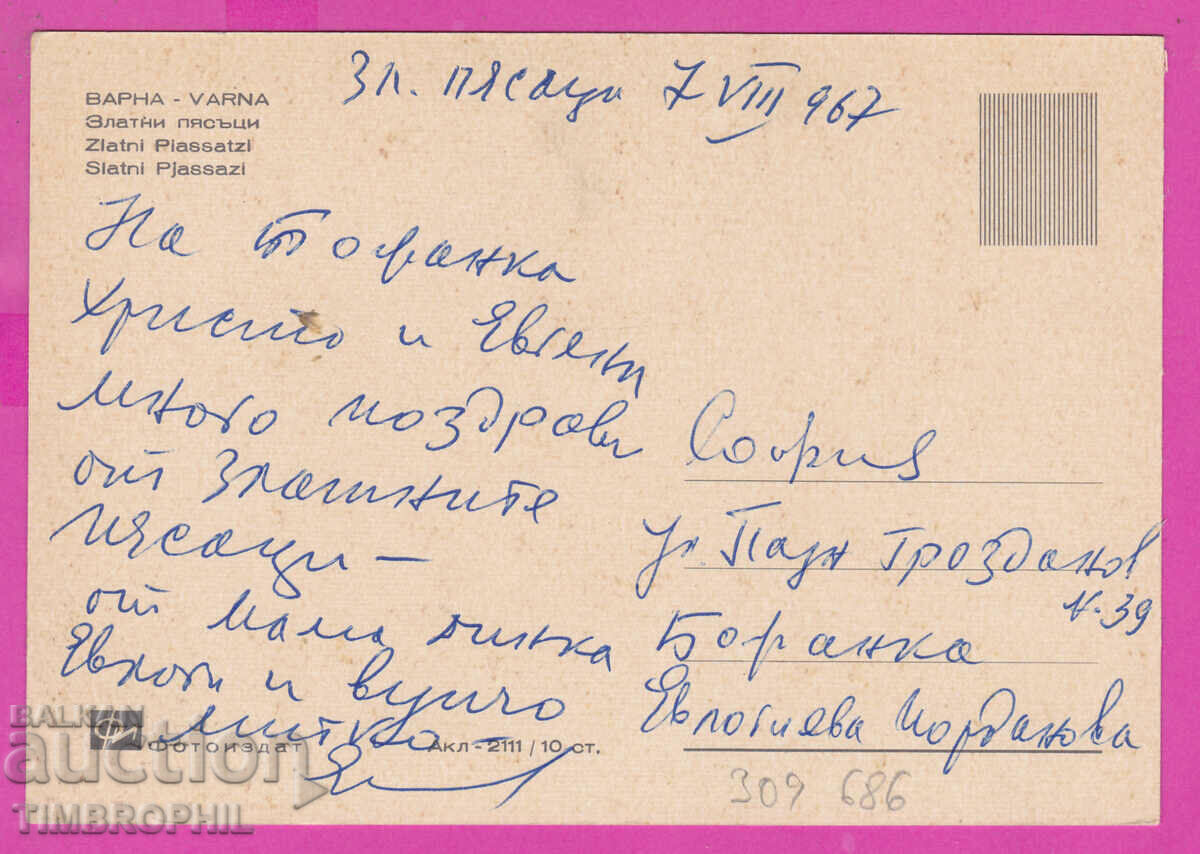 Зл. пясаци 7 VIII 967
ВАРНА - VARNA
Златни пясъци
Zlatni Piassatzi
Slatni Pjassazi
На Боранка
Христо и Евгени
много поздрави
от Златните
Пясаци -
от мама
и вуйчо
Митко -
София
ул. Паун Грозданов
н. 39
Боранка
Евлогиева Йорданова
Фотоиздат
Акл - 2111 / 10 ст.
309 686
BALKAN
auction
TIMBROPHIL